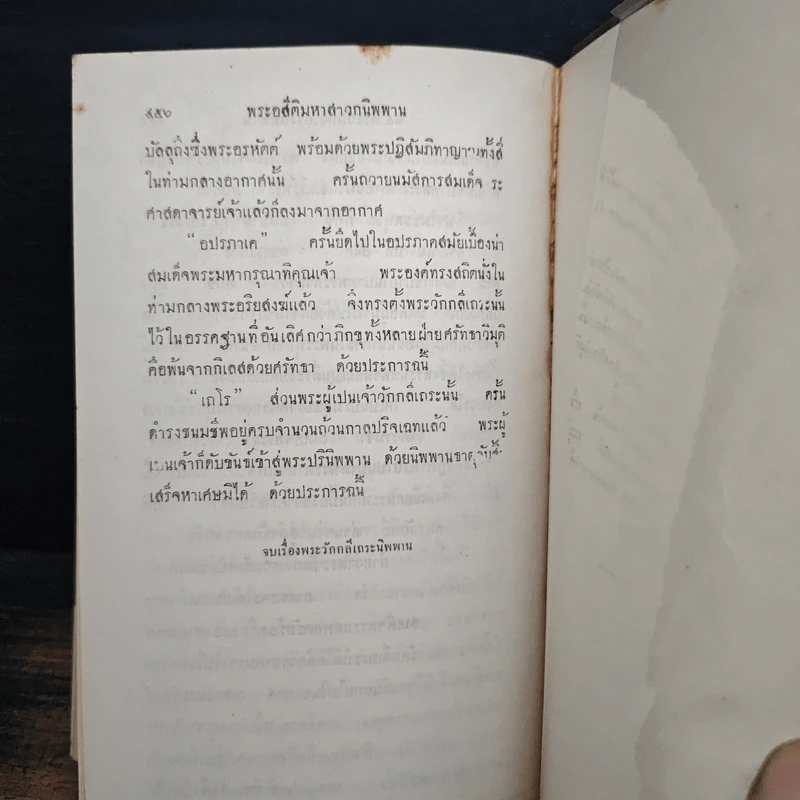 ๔๕๖ พระอสีติมหาสาวกนิพพาน
บัลลุถึงซึ่งพระอรหัตต์ พร้อมด้วยพระปฏิสัมภิทาญาณทั้งสี่
ในท่ามกลางอากาศนั้น ครั้นถวายนมัสการสมเด็จ ระ
ศาสดาจารย์เจ้าแล้วก็ลงมาจากอากาศ
“อปรภาเค” ครั้นยืดไปในอปรภาคสมัยเบื้องน่า
สมเด็จพระมหากรุณาทิคุณเจ้า พระองค์ทรงสถิตนั่งใน
ท่ามกลางพระอริยสงฆ์แล้ว จึ่งทรงตั้งพระวักกลีเถระนั้น
ไว้ในอรรคฐานที่อันเลิศกว่าภิกขุทั้งหลายฝ่ายศรัทธาวิมุติ
คือพ้นจากกิเลสด้วยศรัทธา ด้วยประการฉนี้
“เถโร” ส่วนพระผู้เปนเจ้าวักกลีเถระนั้น ครั้น
ดำรงชนมชีพอยู่ครบจำนวนถ้วนกาลปริจเฉทแล้ว พระผู้
เปนเจ้าก็ดับขันธ์เข้าสู่พระปรินิพพาน ด้วยนิพพานธาตุ
เสร็จหาเศษมิได้ ด้วยประการฉนี้
จบเรื่องพระวักกลีเถระนิพพาน